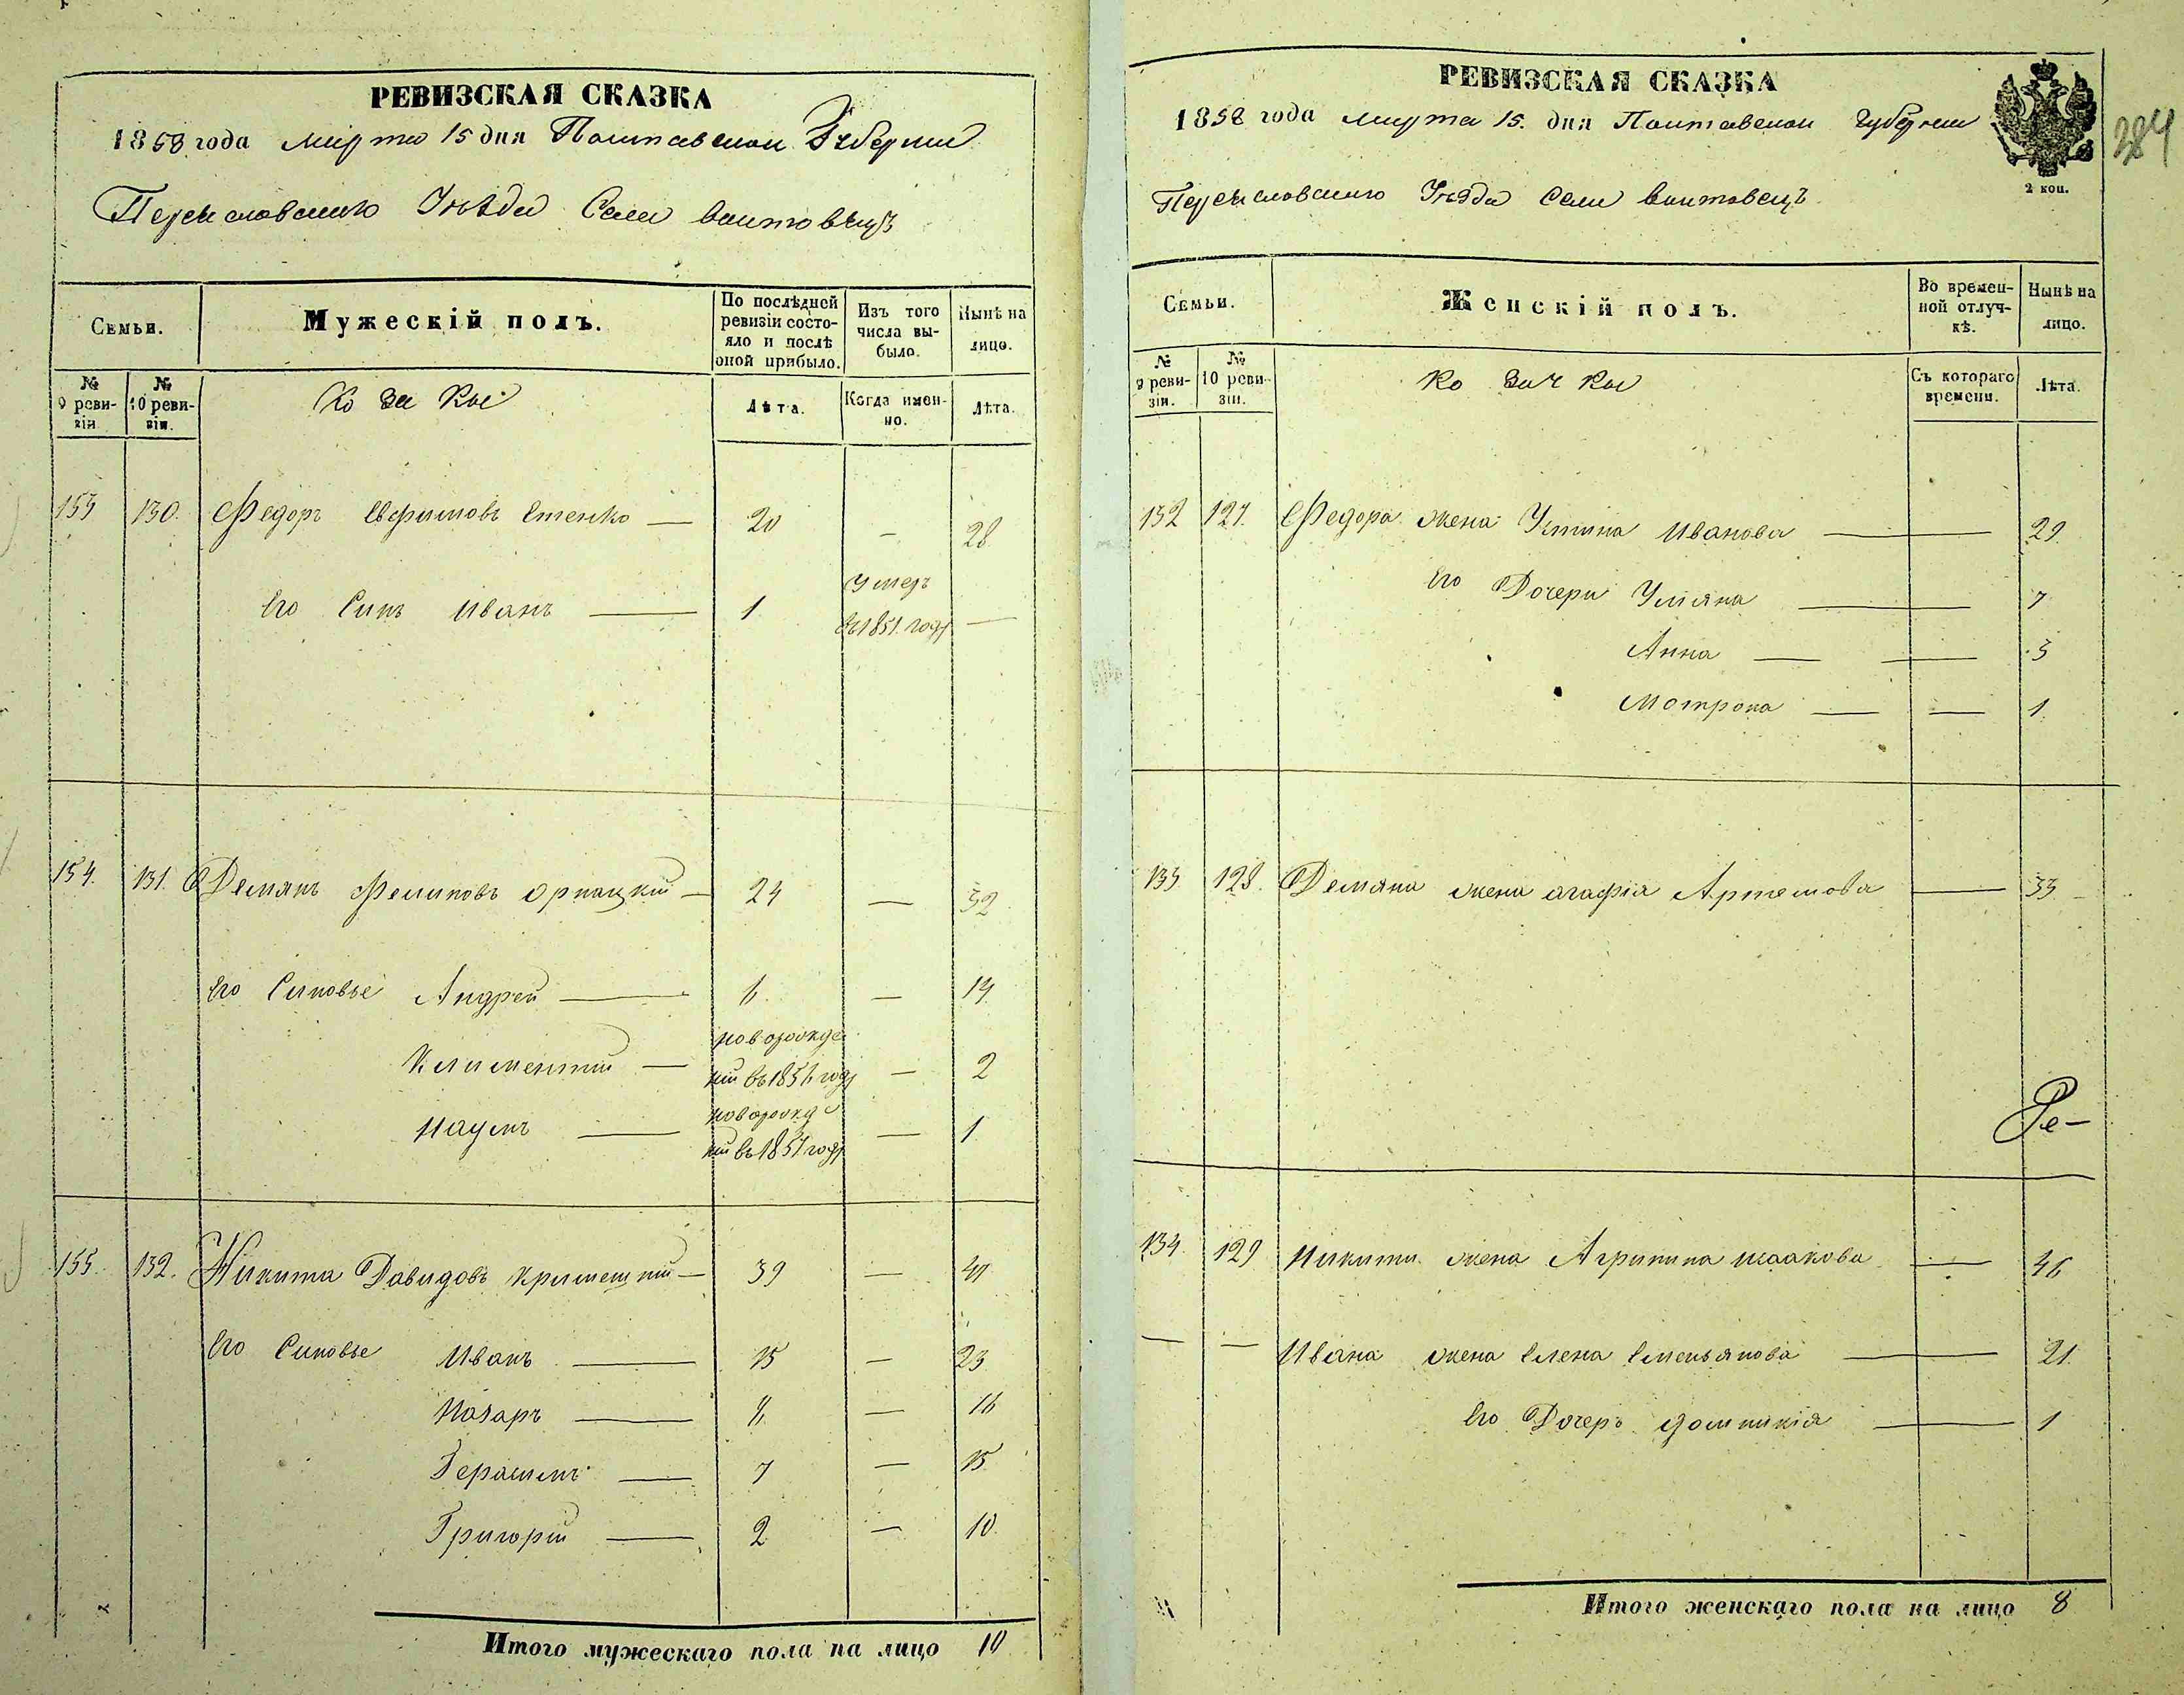 РЕВИЗСКАЯ СКАЗКА
1858 года марта 15 дня Полтавской Губернии
Переяславского Уѣзда Села Войтовецъ
Семьи.
Мужескій полъ.
По послѣдней ревизіи состояло и послѣ оной прибыло.
Изъ того числа выбыло.
Нынѣ на лицо.
№ 9 ревизіи.
№ 10 ревизіи.
Козаки
Лѣта.
Когда именно.
Лѣта.
153 130. Федоръ Евфимовъ Стенко — 20 — 28
Его Синъ Иванъ — 1 умеръ въ 1851 году —
154. 131. Демянъ Фелиповъ — 24 — 32
Его Синовье Андрей — 6. — 14
Климентий — новорожденій въ 1856 году — 2
Наумъ — новорожденій въ 1857 году — 1
155. 132. Никита Давидовъ — 39 — 47
Его Синовье Иванъ — 15 — 23
Назаръ — 8 — 16
Герасимъ — 7 — 15
Григорій — 2 — 10.
Итого мужескаго пола на лицо 10
РЕВИЗСКАЯ СКАЗКА
1858 года марта 15. дня Полтавской губернии
2 коп.
284
Переяславского Уѣзда Села Войтовецъ
Семьи.
Женскій полъ.
Во временной отлучкѣ.
Нынѣ на лицо.
№ 9 ревизіи.
№ 10 ревизіи.
Козачки
Съ котораго времени.
Лѣта.
132 127. Федора жена Устина Иванова — 29
Его Дочери Уляна — 7
Анна — — 3
Мотрона — — 1.
133 128. Демяна жена Агафія Артемова — 33
Ре-
134. 129 Никити жена Агрипина Исаакова — 46
— — Ивана жена Елена Емельянова — 21.
Его Дочеръ Домникія — 1
Итого женскаго пола на лицо 8